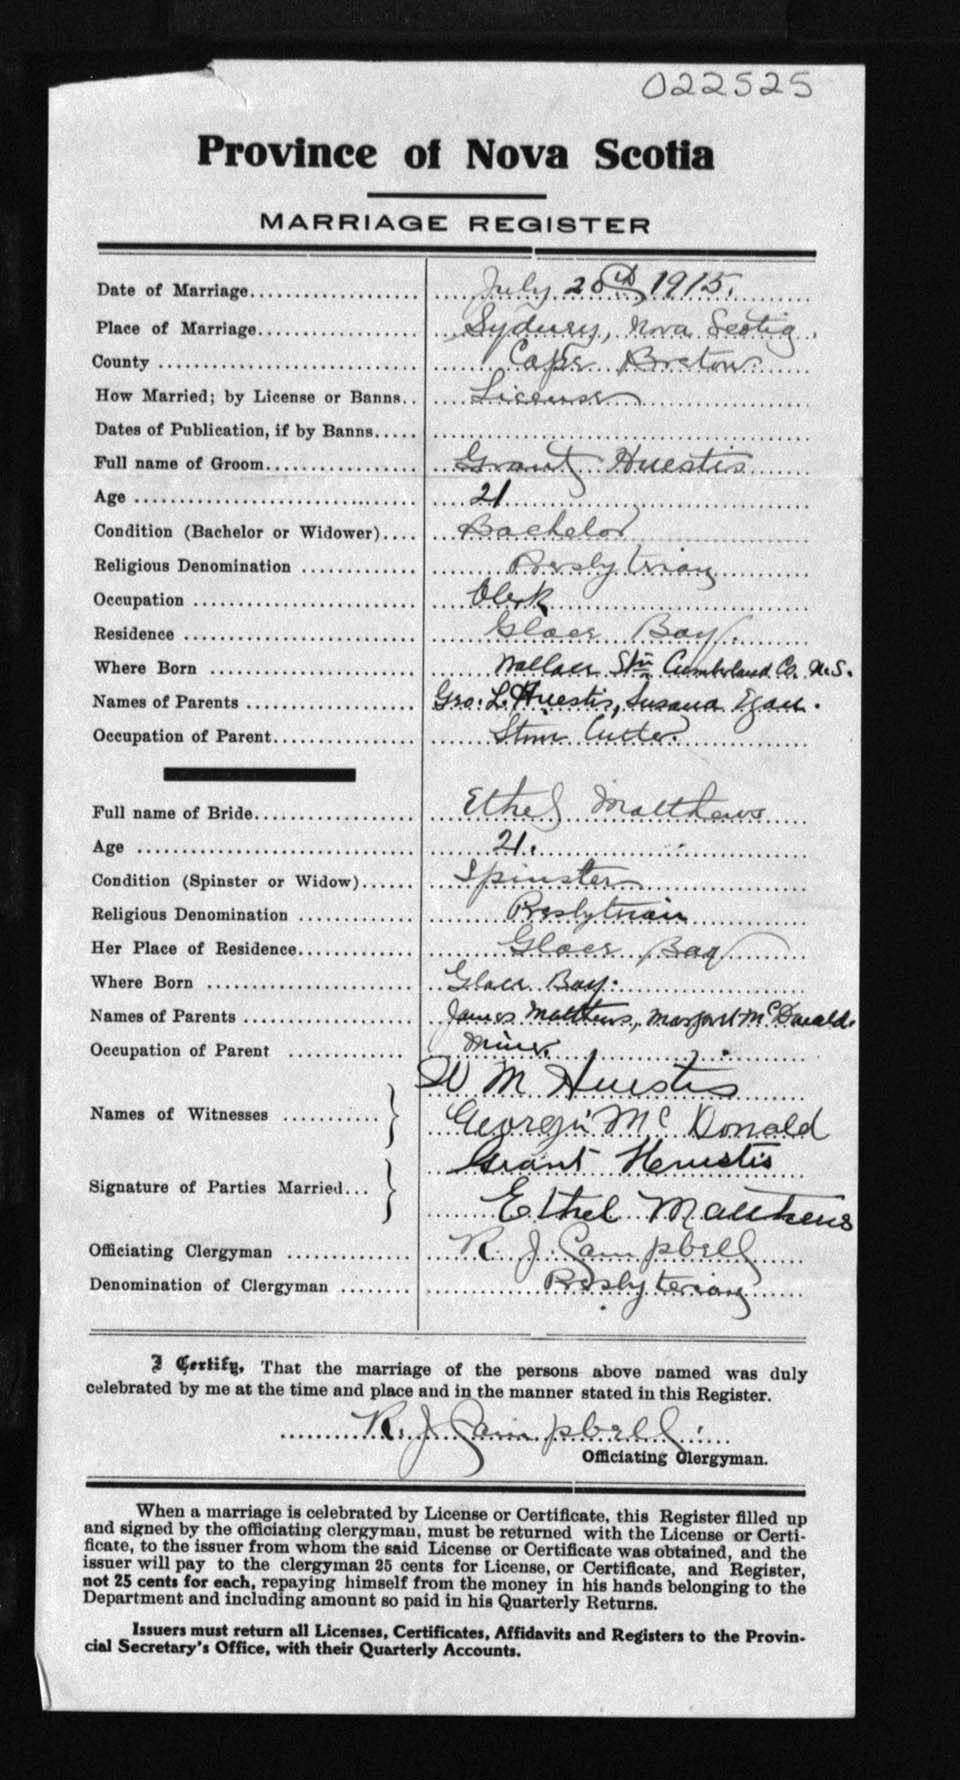 022525
Province of Nova Scotia
MARRIAGE REGISTER
Date of Marriage.................... July 20th 1915.
Place of Marriage................... Sydney, Nova Scotia.
County .............................. Cape Breton.
How Married; by License or Banns.. License
Dates of Publication, if by Banns.....
Full name of Groom.................. Grant Huestis
Age .................................. 21
Condition (Bachelor or Widower).... Bachelor
Religious Denomination .............. Presbytrian
Occupation .......................... Clerk
Residence ........................... Glace Bay.
Where Born ......................... Wallace Stn Cumberland Co. N.S.
Names of Parents .................... Geo. L. Huestis, Susana Egan.
Occupation of Parent................. Stone Cutter.
Full name of Bride................... Ethel Matthews
Age ................................. 21.
Condition (Spinster or Widow)...... Spinster
Religious Denomination .............. Presbytrian
Her Place of Residence.............. Glace Bay
Where Born ......................... Glace Bay.
Names of Parents .................... James Matthews, Margaret McDonald.
Occupation of Parent ............... Miner.
W M Huestis
Names of Witnesses ............
Georgie McDonald
Grant Heustis
Signature of Parties Married...
Ethel Matthews
Officiating Clergyman ............... R. J. Campbell
Denomination of Clergyman ........ Presbyterian
I Certify, That the marriage of the persons above named was duly
celebrated by me at the time and place and in the manner stated in this Register.
R. J. Campbell.
Officiating Clergyman.
When a marriage is celebrated by License or Certificate, this Register filled up
and signed by the officiating clergyman, must be returned with the License or Certi-
ficate, to the issuer from whom the said License or Certificate was obtained, and the
issuer will pay to the clergyman 25 cents for License, or Certificate, and Register,
not 25 cents for each, repaying himself from the money in his hands belonging to the
Department and including amount so paid in his Quarterly Returns.
Issuers must return all Licenses, Certificates, Affidavits and Registers to the Provin-
cial Secretary's Office, with their Quarterly Accounts.